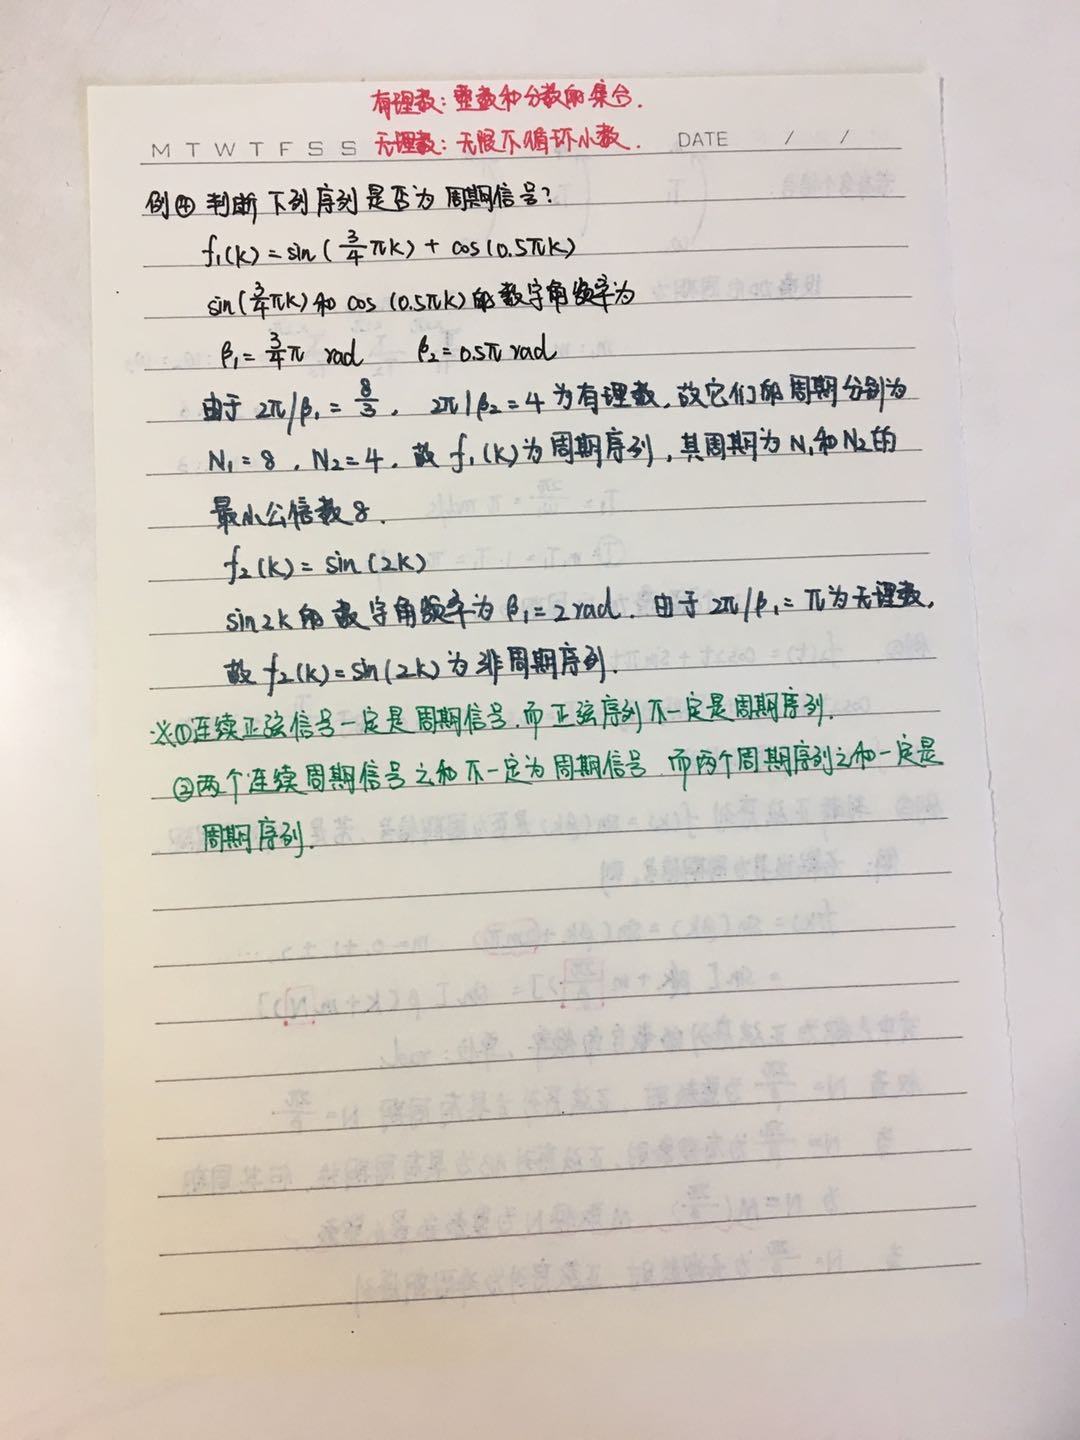 有理数：整数和分数的集合．
无理数：无限不循环小数．
M T W T F S S DATE / /
例④ 判断下列序列是否为周期信号？
f₁(k) = sin(3/4πk) + cos(0.5πk)
sin(3/4πk)和 cos(0.5πk)的数字角频率为
β₁=3/4π rad β₂=0.5π rad
由于 2π/β₁=8/3， 2π/β₂=4为有理数，故它们的周期分别为
N₁=8，N₂=4，故f₁(k)为周期序列，其周期为N₁和N₂的
最小公倍数8．
f₂(k) = sin(2k)
sin2k的数字角频率为β₁=2rad．由于2π/β₁=π为无理数，
故f₂(k)=sin(2k)为非周期序列．
※①连续正弦信号一定是周期信号，而正弦序列不一定是周期序列．
②两个连续周期信号之和不一定为周期信号，而两个周期序列之和一定是
周期序列．